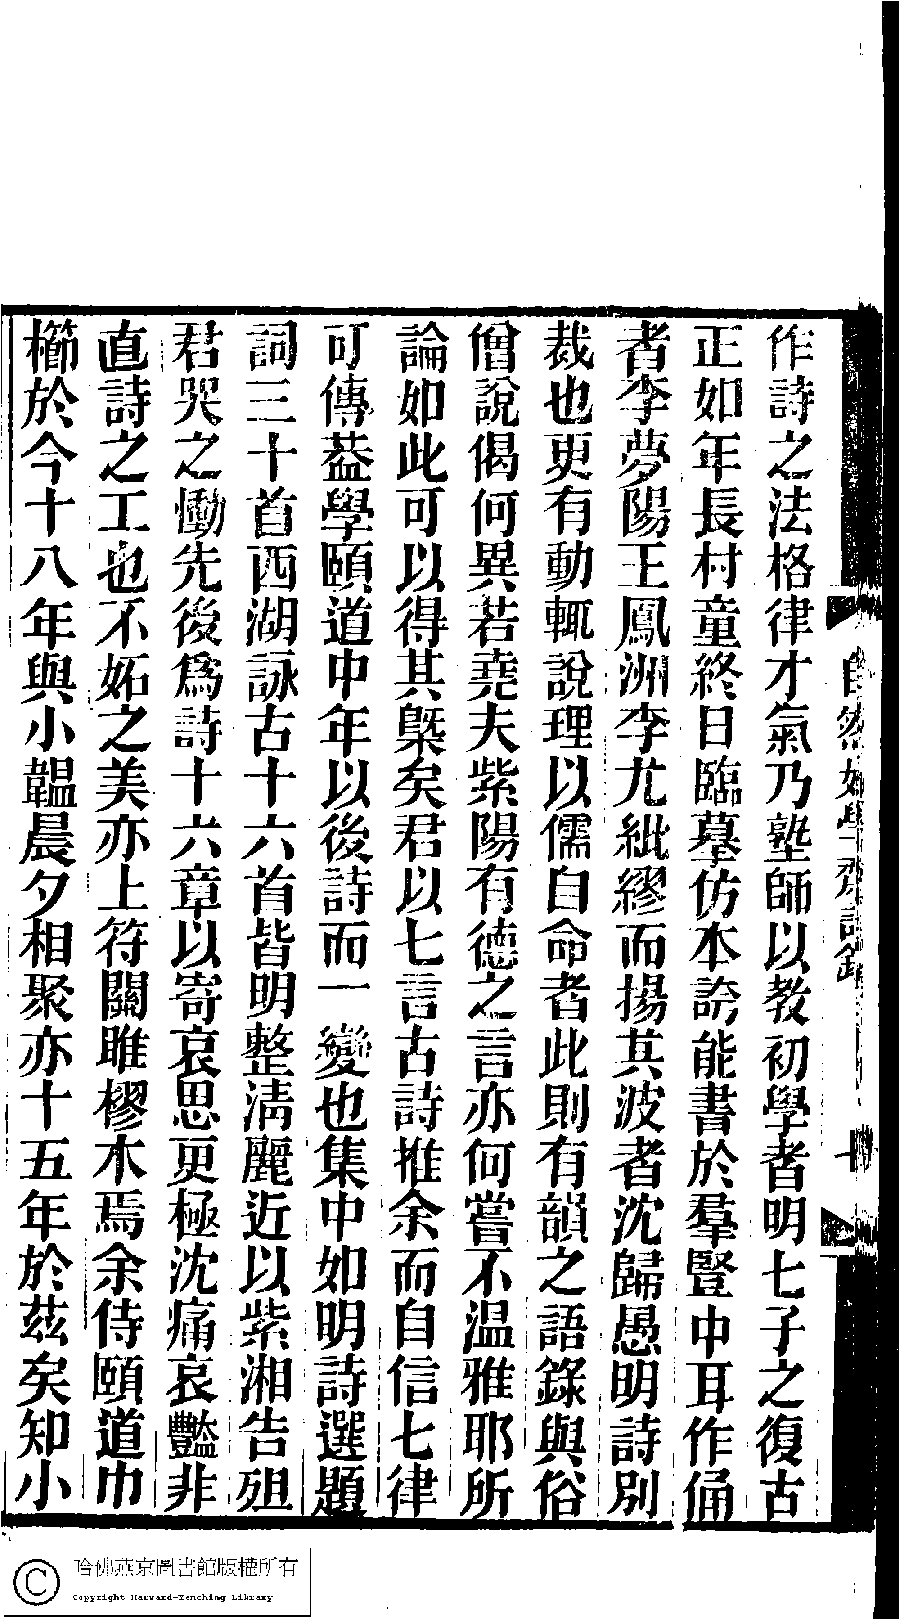 作詩之法格律才氣乃塾師以教初學者明七子之復古
正如年長村童終日臨摹仿本誇能書於羣豎中耳作俑
者李夢陽王鳳洲李尤紕繆而揚其波者沈歸愚明詩別
裁也更有動輒說理以儒自命者此則有韻之語錄與俗
僧說偈何異若堯夫紫陽有德之言亦何嘗不温雅耶所
論如此可以得其槩矣君以七言古詩推余而自信七律
可傳葢學頤道中年以後詩而一變也集中如明詩選題
詞三十首西湖詠古十六首皆明整淸麗近以紫湘告殂
君哭之慟先後爲詩十六章以寄哀思更極沈痛哀豔非
直詩之工也不妬之美亦上符關雎樛木焉余侍頤道巾
櫛於今十八年與小韞晨夕相聚亦十五年於茲矣知小
自然好學齋詩鈔
十
哈佛燕京圖書館版權所有
Copyright Harvard-Yenching Library